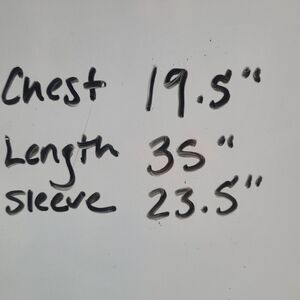 Chest 19.5"
Length 35"
Sleeve 23.5"